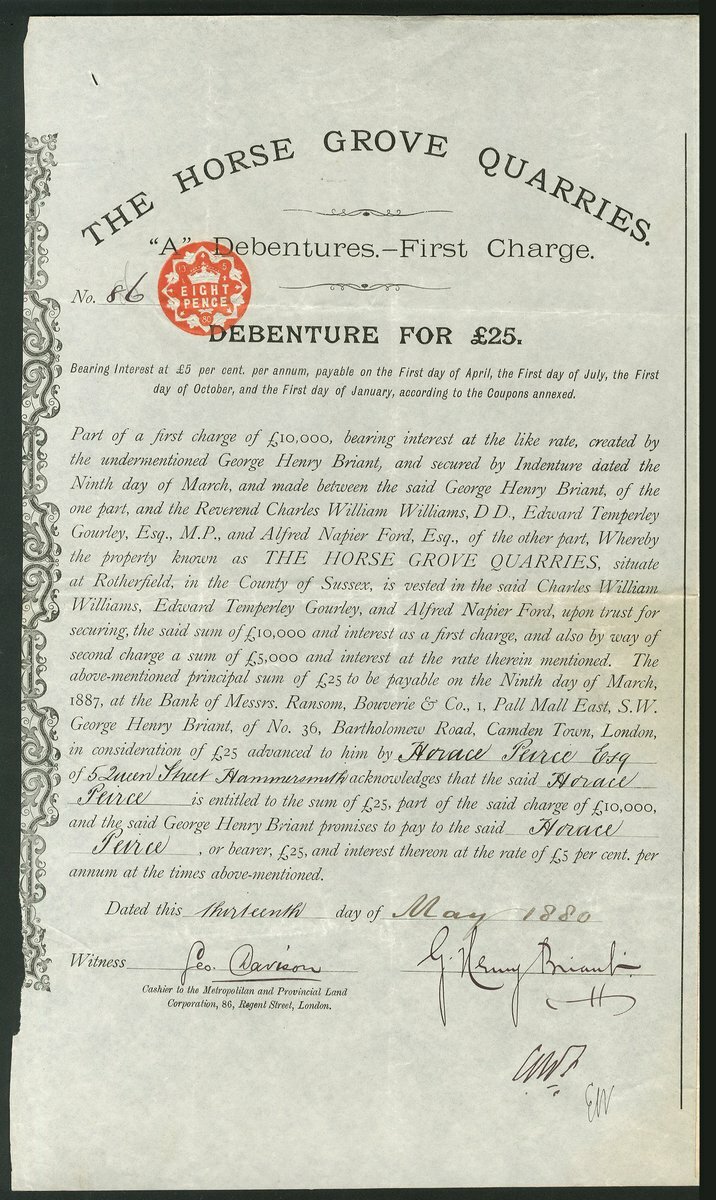 THE HORSE GROVE QUARRIES.
"A" Debentures.—First Charge.
No. 86
EIGHT
PENCE
80
DEBENTURE FOR £25.
Bearing Interest at £5 per cent. per annum, payable on the First day of April, the First day of July, the First
day of October, and the First day of January, according to the Coupons annexed.
Part of a first charge of £10,000, bearing interest at the like rate, created by
the undermentioned George Henry Briant, and secured by Indenture dated the
Ninth day of March, and made between the said George Henry Briant, of the
one part, and the Reverend Charles William Williams, D D., Edward Temperley
Gourley, Esq., M.P., and Alfred Napier Ford, Esq., of the other part, Whereby
the property known as THE HORSE GROVE QUARRIES, situate
at Rotherfield, in the County of Sussex, is vested in the said Charles William
Williams, Edward Temperley Gourley, and Alfred Napier Ford, upon trust for
securing, the said sum of £10,000 and interest as a first charge, and also by way of
second charge a sum of £5,000 and interest at the rate therein mentioned. The
above-mentioned principal sum of £25 to be payable on the Ninth day of March,
1887, at the Bank of Messrs. Ransom, Bouverie & Co., 1, Pall Mall East, S.W.
George Henry Briant, of No. 36, Bartholomew Road, Camden Town, London,
in consideration of £25 advanced to him by Horace Peirce Esq
of 5 Queen Street Hammersmith acknowledges that the said Horace
Peirce is entitled to the sum of £25, part of the said charge of £10,000,
and the said George Henry Briant promises to pay to the said Horace
Peirce, or bearer, £25, and interest thereon at the rate of £5 per cent. per
annum at the times above-mentioned.
Dated this thirteenth day of May 1880
Witness Geo. Davison G. Henry Briant
Cashier to the Metropolitan and Provincial Land
Corporation, 86, Regent Street, London.